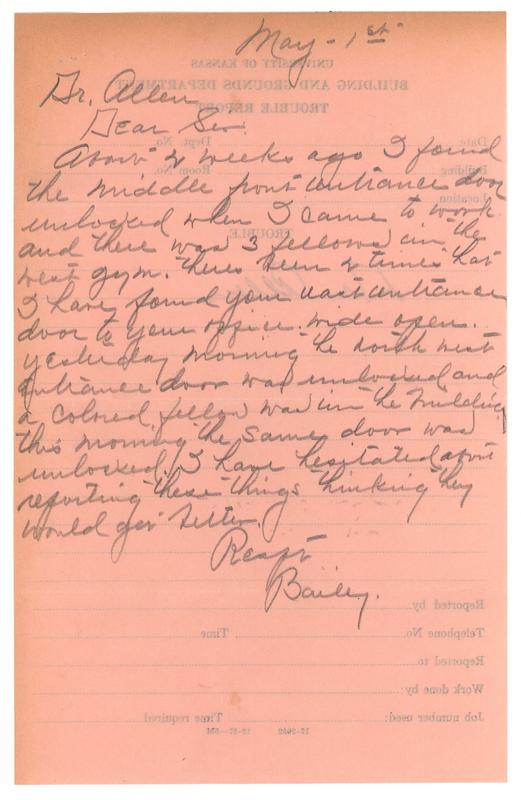 May - 1st
UNIVERSITY OF KANSAS
BUILDING AND GROUNDS DEPARTMENT
TROUBLE REPORT
Dr. Allen
Dear Sir.
Date
Dept. No.
About 2 weeks ago I found
Building
Room No.
the middle front entrance door
Location
unlocked when I came to work.
TROUBLE
and there was 3 fellows in the
west gym. theres been 2 times that
I have found your east entrance
door to your office. wide open.
yesterday morning the north west
entrance door was unlocked and
a colored fellow was in the building
this morning the same door was
unlocked. I have hesitated about
reporting these things thinking they
would get better.
Respt
Bailey.
Reported by
Telephone No.
Time
Reported to
Work done by:
Job number used:
Time required
17-2082 12-37-5M